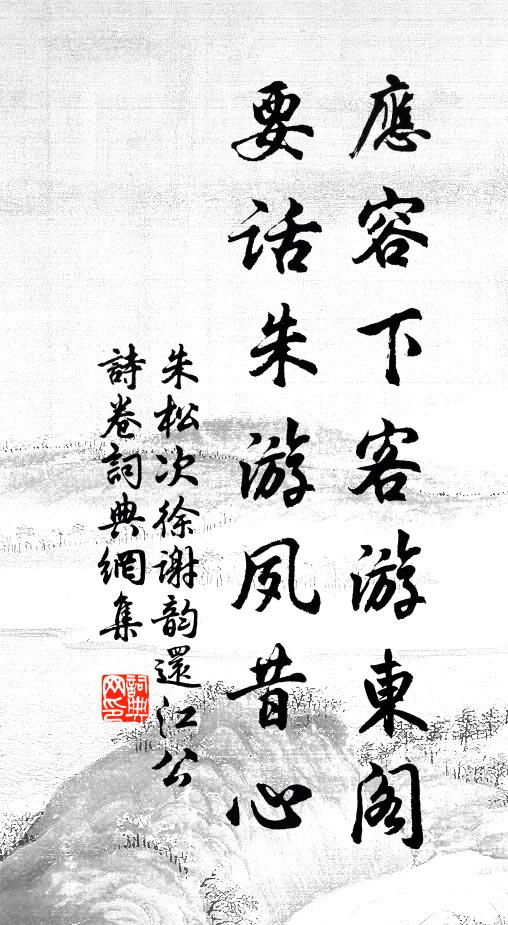 應容下客游東閣
要話朱游夙昔心
朱松次徐謝韵還江公
詩卷詞典網集
詞典
网印